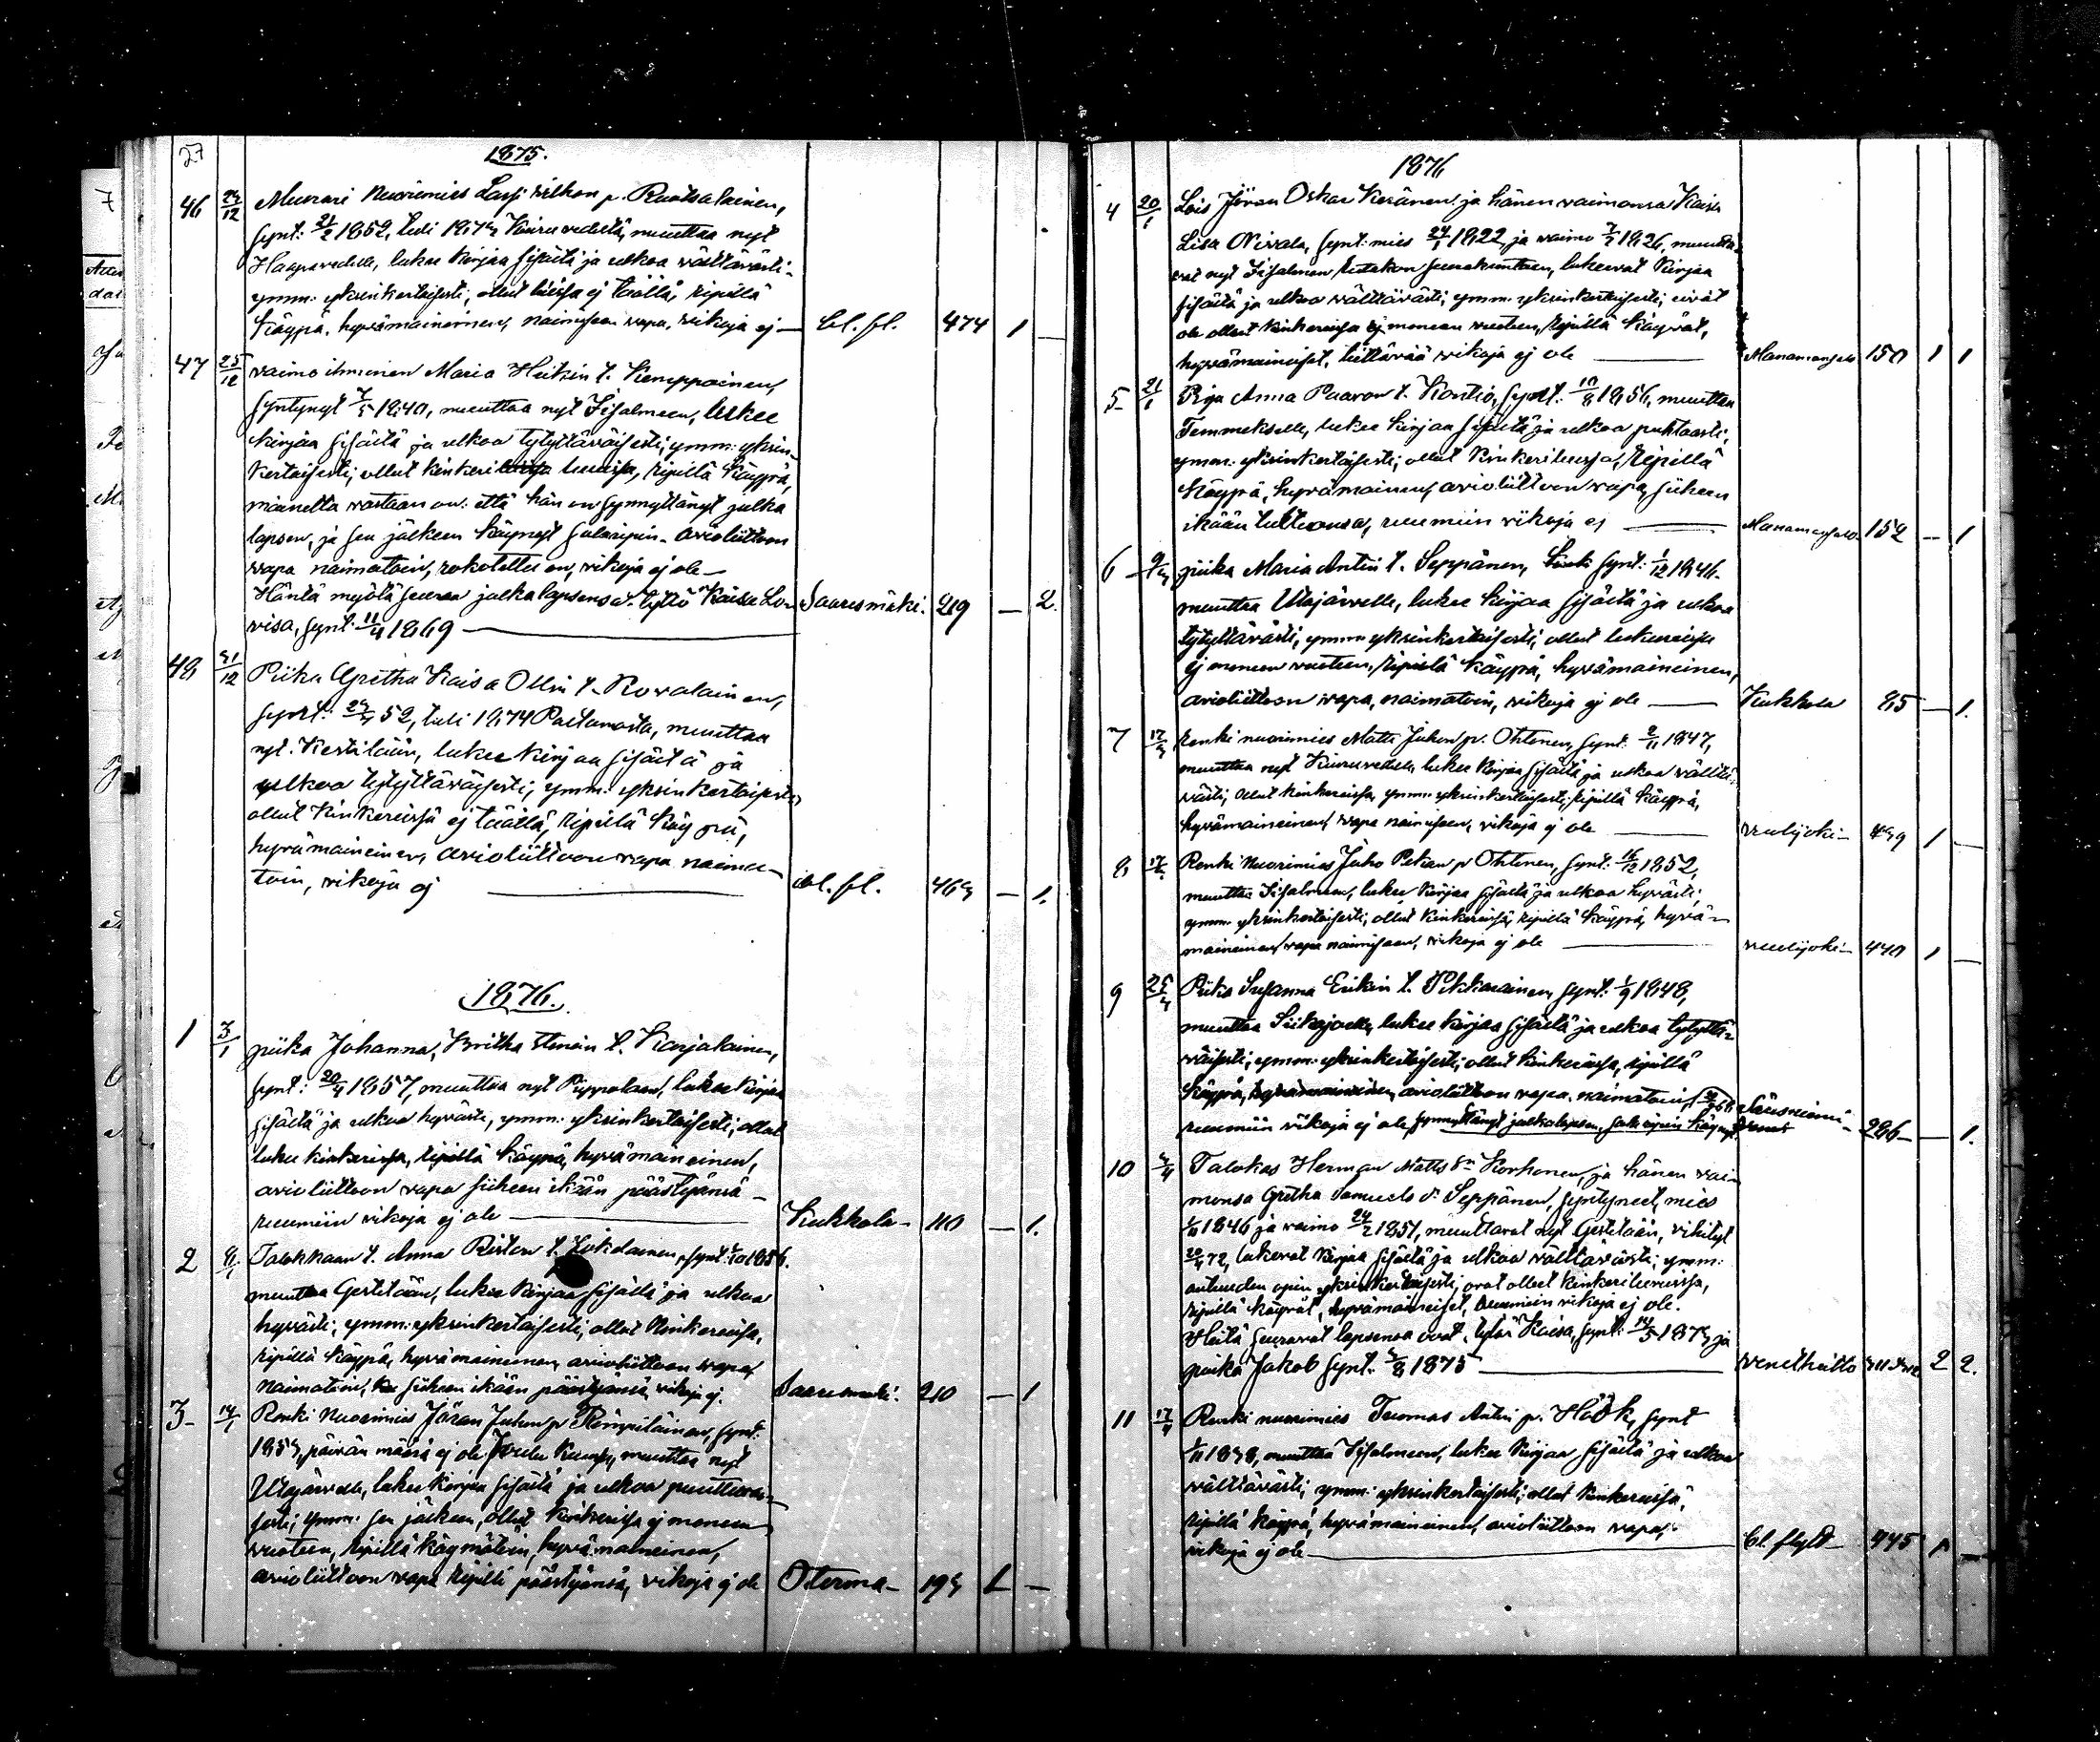 27
1875.
46 24/12 Muurari Nuorimies Lassi wilhon p. Ruotsalainen,
synt: 21/2 1852, tuli 1873 Kiuruvedeltä, muuttaa nyt
Haapavedelle, lukee kirjaa sisältä ja ulkoa välttävästi,
ymm: yksinkertaisesti, ollut luissa ej täällä, ripillä
käypä, hyvämaineinen, naimiseen vapa, vikoja ej — bl. fl. 474 1 —
47 23/12 vaimo ihminen Maria Heikin t. Kemppainen,
syntynyt 3/5 1840, muuttaa nyt Iisalmeen, lukee
kirjaa sisältä ja ulkoa tytyttäväisesti, ymm: yksin-
kertaisesti, ollut kinkeri luissa, ripillä käypä,
mainetta vastaan on: että hän on synnyttänyt julka
lapsen, ja sen jälkeen käynyt salaripin. Avioliittoon
vapa naimatoin, rokotettu on, vikoja ej ole —
Häntä myötä seuraa julkalapsensa: tyttö Kaisa Lo- Saaresmäki. 219 — 2.
visa, synt: 11/4 1869 —
48 31/12 Piika Gretha Kaisa Ollin t. Kovalainen,
synt: 52, tuli 1874 Paltamosta, muuttaa
nyt Kestilään, lukee kirjaa sisältä ja
ulkoa tytyttäväisesti, ymm: yksinkertaisesti,
ollut kinkerissä ej täällä, ripillä käypä,
hyvämaineinen, avioliittoon vapa naima-
toin, vikoja ej — bl. fl. 463 — 1.
1876.
1 3/1 piika Johanna, Britha t. Karjalainen,
synt: 20/4 1857, muuttaa nyt Piippolaan, lukee kirjaa
sisältä ja ulkoa hyvästi, ymm: yksinkertaisesti, ollut
luku kinkerissa, ripillä käypä, hyvämaineinen,
avioliittoon vapa siiheen ikään päästyänsä —
ruumiin vikoja ej ole — Kukkola — 110 — 1.
2 Talokkaan t. Anna Riston t. synt: 1856.
muuttaa Gestilään, lukee kirjaa sisältä ja ulkoa
hyvästi, ymm: yksinkertaisesti, ollut kinkereissa,
ripillä käypä, hyvämaineinen, avioliittoon vapa,
naimatoin, siiheen ikään päästyänsä, vikoja ej. Saaresmäki. 210 — 1
3 14/1 Renki Nuorimies Jöran Juhon p. Kömpiläinen, synt:
1853, päivän määrä ej ole muuttaa nyt
Utajärvelle, lukee kirjaa sisältä ja ulkoa puuttuvai-
sesti; ymm: sen jälkeen, ollut kinkerissa ej moneen
vuoteen, ripillä käymätöin, hyvämaineinen,
avioliittoon vapa ripille päästyänsä, vikoja ej ole Oterma — 193 1 —
1876
4 20/1 Lois Jöran Oskar Keränen ja hänen vaimonsa Kaisa
Lisa Nivala, synt: mies 24/1 1822, ja vaimo 7/2 1826, muutta-
vat nyt Iisalmen seurakuntaan, lukeevat kirjaa
sisältä ja ulkoa välttävästi, ymm: yksinkertaisesti, eivät
ole olleet kinkereissa ej moneen vuoteen, ripillä käyvät,
hyvämaineiset, liittävää vikoja ej ole — Manamansalo 150 1 1
5 21/1 Piia Anna Paavon t. Kontio, synt: 1856, muuttaa
Temmekselle, lukee kirjaa sisältä ja ulkoa puhtaasti,
ymm: yksinkertaisesti, ollut kinkeriluissa, ripillä
käypä, hyvämainen, avioliittoon vapa, siiheen
ikään tultuansa, ruumiin vikoja ej — Manamansalo. 152 — 1
6 piika Maria Antin t. Seppänen, synt: 1/12 1846.
muuttaa Utajärvelle, lukee kirjaa sisältä ja ulkoa
tytyttävästi, ymm: yksinkertaisesti, ollut lukureissa
ej moneen vuoteen, ripillä käypä, hyvämaineinen,
avioliittoon vapa, naimatoin, vikoja ej ole — Kukkola 85 — 1.
7 Renki nuorimies Matti Juhon p. Ohtonen, synt: 9/11 1847,
muuttaa nyt Kiuruvedelle, lukee kirjaa sisältä ja ulkoa vältti-
västi, ollut kinkereissa, ymm: yksinkertaisesti, ripillä käypä,
hyvämaineinen, vapa naimiseen, vikoja ej ole — vuolijoki — 439 1 —
8 Renki Nuorimies Juho Pekan p Ohtonen, synt: 16/12 1852,
muuttaa Iisalmeen, lukee kirjaa sisältä ja ulkoa hyvästi;
ymm: yksinkertaisesti, ollut kinkerissä, ripillä käypä, hyvä-
maineinen, vapa naimiseen, vikoja ej ole — vuolijoki — 440 1 —
9 Piika Susanna Erikin t. Pikkarainen, synt: 1/9 1848,
muuttaa Siikajoelle, lukee kirjaa sisältä ja ulkoa tytyttä-
väisesti, ymm: yksinkertaisesti, ollut kinkerissa, ripillä
käypä, hyvämaineinen, avioliittoon vapa, naimatoin,
ruumiin vikoja ej ole, synnyttänyt julkalapsen, salaripin käynyt. Säresniemi — 286 — 1.
10 Talokas Herman Matts sn Korhonen, ja hänen vai-
monsa Gretha Samuels dr Seppänen, syntyneet, mies
1846 ja vaimo 24/2 1851, muuttavat nyt Gestilään, vihityt
72, lukevat kirjaa sisältä ja ulkoa välttävästi, ymm:
autuuden opin yksinkertaisesti, ovat olleet kinkeriluvuissa,
ripillä käyvät, hyvämaineiset, ruumiin vikoja ej ole.
Heitä seuraavat lapsensa ovat: tytär Kaisa, synt: 14/5 1873 ja
poika Jakob synt. 1875 — venetheitto 2 2.
11 17/4 Renki nuorimies Tuomas Antin p. Höök, synt
1838, muuttaa Iisalmeen, lukee kirjaa sisältä ja ulkoa
välttävästi, ymm: yksinkertaisesti, ollut kinkerissä,
ripillä käypä, hyvämaineinen, avioliittoon vapa,
vikoja ej ole — bl. flyld 445 1 —